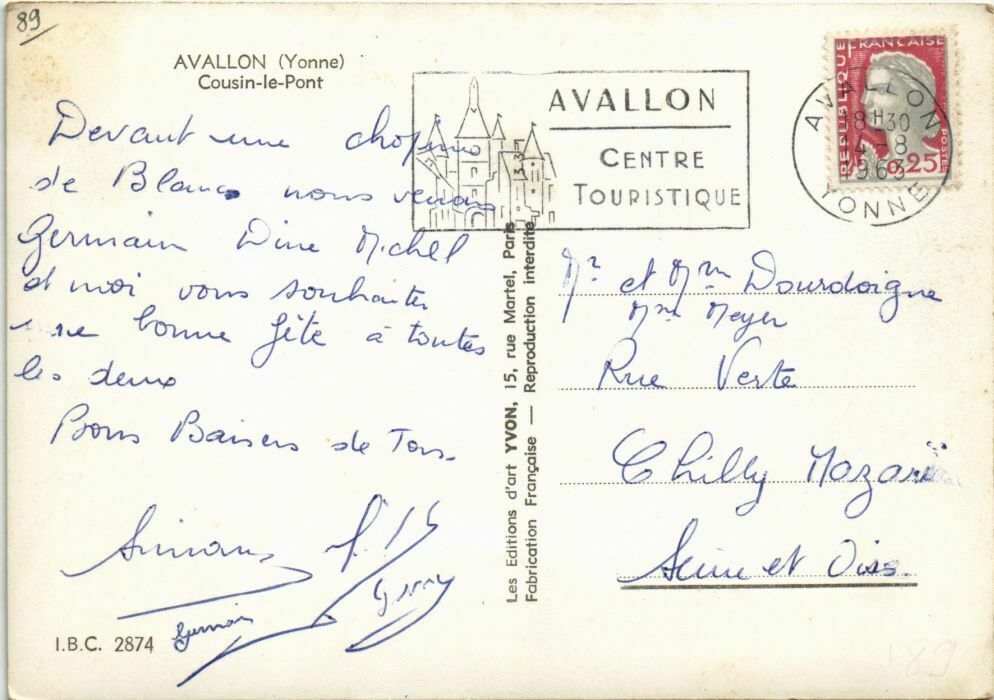 89
AVALLON (Yonne)
Cousin-le-Pont
Devant une chopine
de Blanc nous venons
Germain Dine Michel
et moi vous souhaiter
une bonne fête à toutes
les deux
Bons Baisers de Tous
Germain
I.B.C. 2874
AVALLON
CENTRE
TOURISTIQUE
Les Editions d'art YVON, 15, rue Martel, Paris
Fabrication Française — Reproduction interdite
REPUBLIQUE FRANCAISE
POSTES
0,25
AVALLON
18H30
14-8
1963
YONNE
Mr et Mme Dourdoigne
Mme Meyer
Rue Verte
Chilly Mazarin
Seine et Oise
89